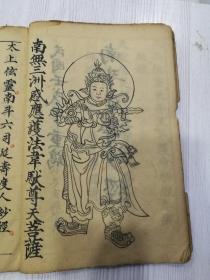 南無三洲感應護法韋馱尊天菩薩
太上伭靈南斗六司延壽度人妙經